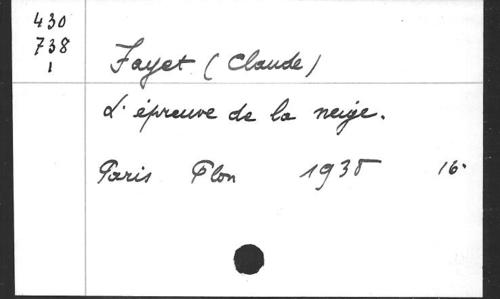 430
738
1
Fayet (Claude)
L'épreuve de la neige.
Paris Plon 1938 16°